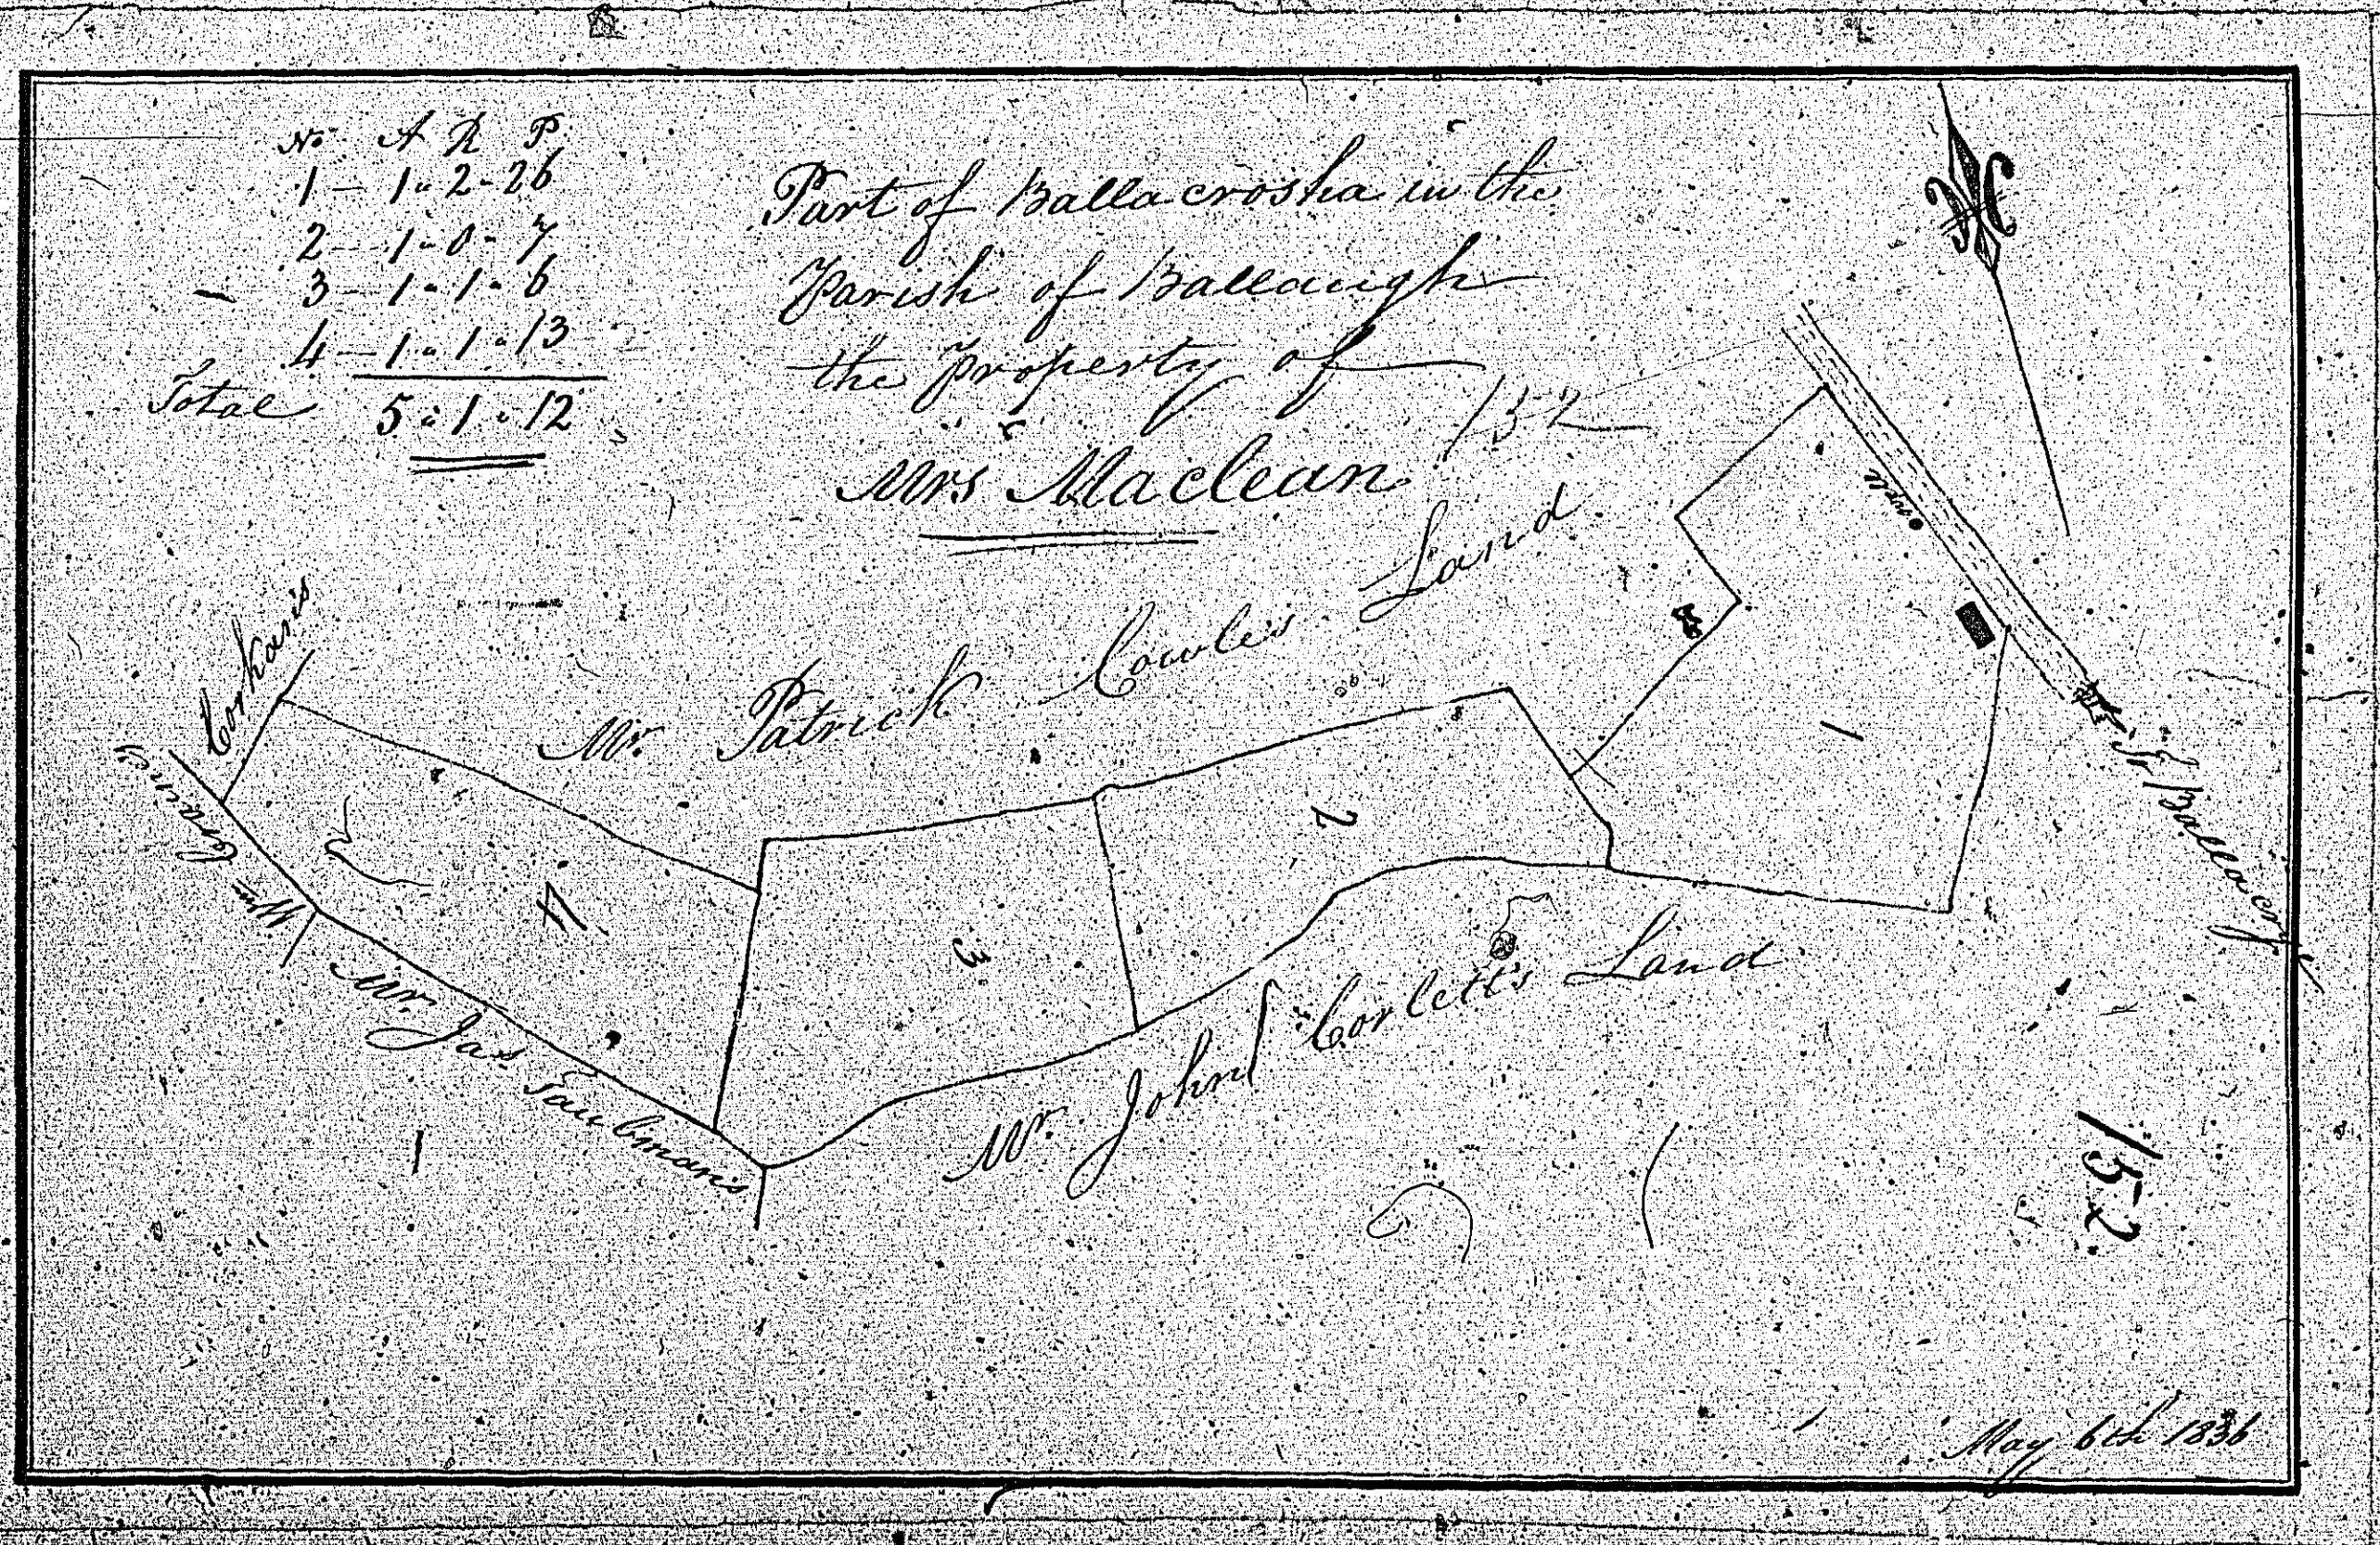 No A R P
1 — 1 " 2 - 26
2 — 1 - 0 - 7
3 — 1 - 1 - 6
4 — 1 " 1 " 13
Total 5 " 1 " 12
Part of Ballacrosha in the
Parish of Ballaugh
the Property of
Mrs Maclean
152
Mr. Patrick Cowle's Land
Corkan's
Wm Crane's
Mr. Jas Taubman's
Mr. John Corlett's Land
1
2
3
4
152
May 6th 1836